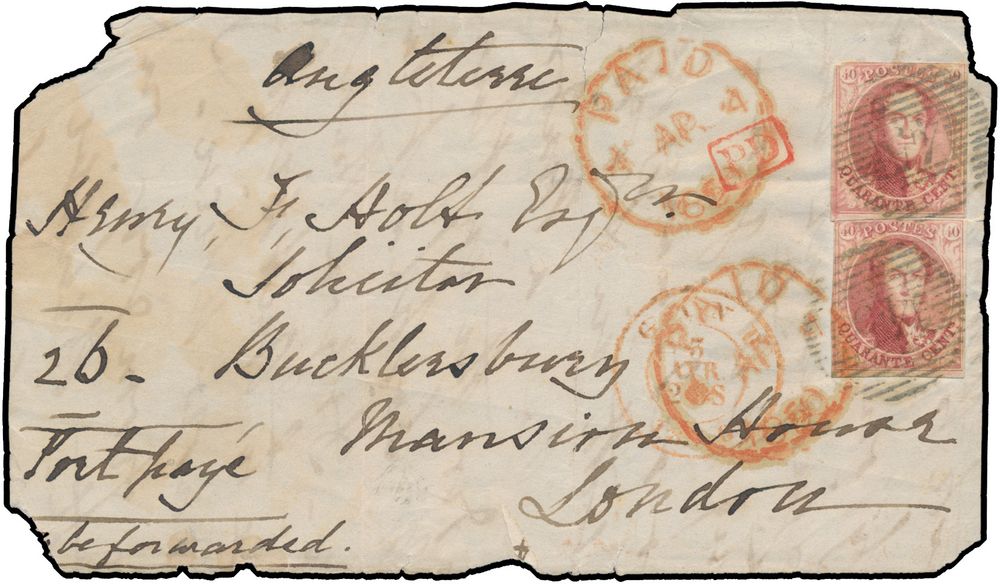 Angleterre
Henry F. Holt Esqre.
Solicitor
26- Bucklersbury
Mansion House
London
Port payé
be forwarded.
PAID
4 AP 4
1860
PD
PAID
AP
1860
5
40 POSTES 40
QUARANTE CENT.
40 POSTES 40
QUARANTE CENT.